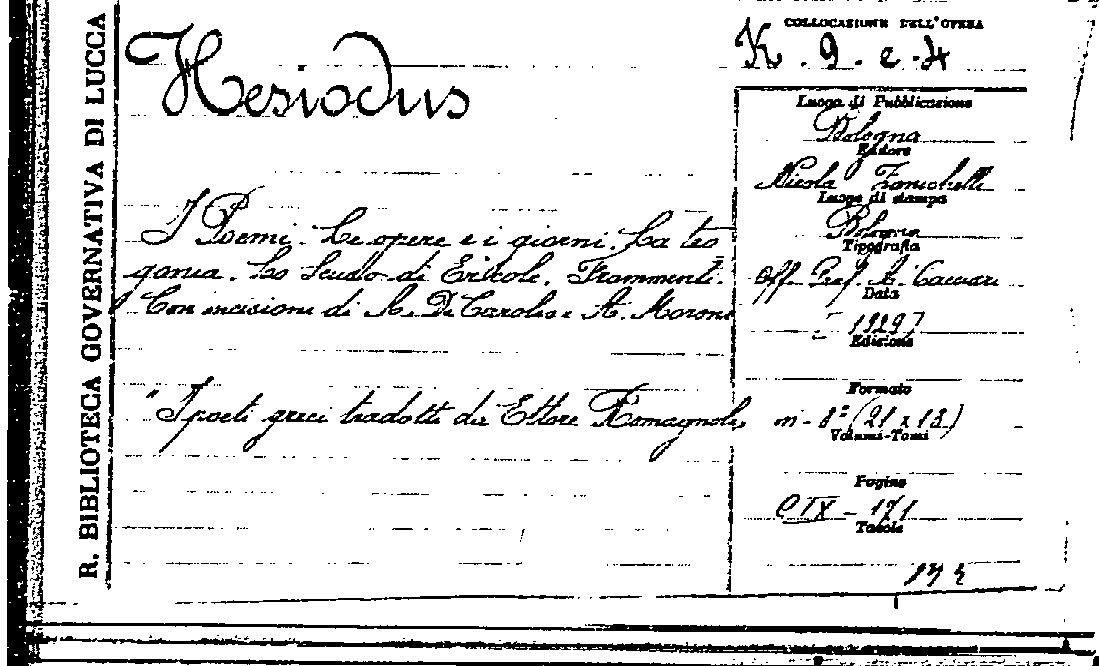 R. BIBLIOTECA GOVERNATIVA DI LUCCA
Hesiodus
I Poemi. Le opere e i giorni. La teo
gonia. Lo Scudo di Ercole. Frammenti.
Con incisioni di A. De Carolis e A. Moroni
"I poeti greci tradotti da Ettore Romagnoli
COLLOCAZIONE DELL'OPERA
K. 9. e. 4
Luogo di Pubblicazione
Bologna
Editore
Nicola Zanichelli
Luogo di stampa
Bologna
Tipografia
Off. Prof. A. Cacciari
Data
Edizione
Formato
in-8° (21 x 13)
Volumi-Tomi
Pagine
CIX - 171
Tavole